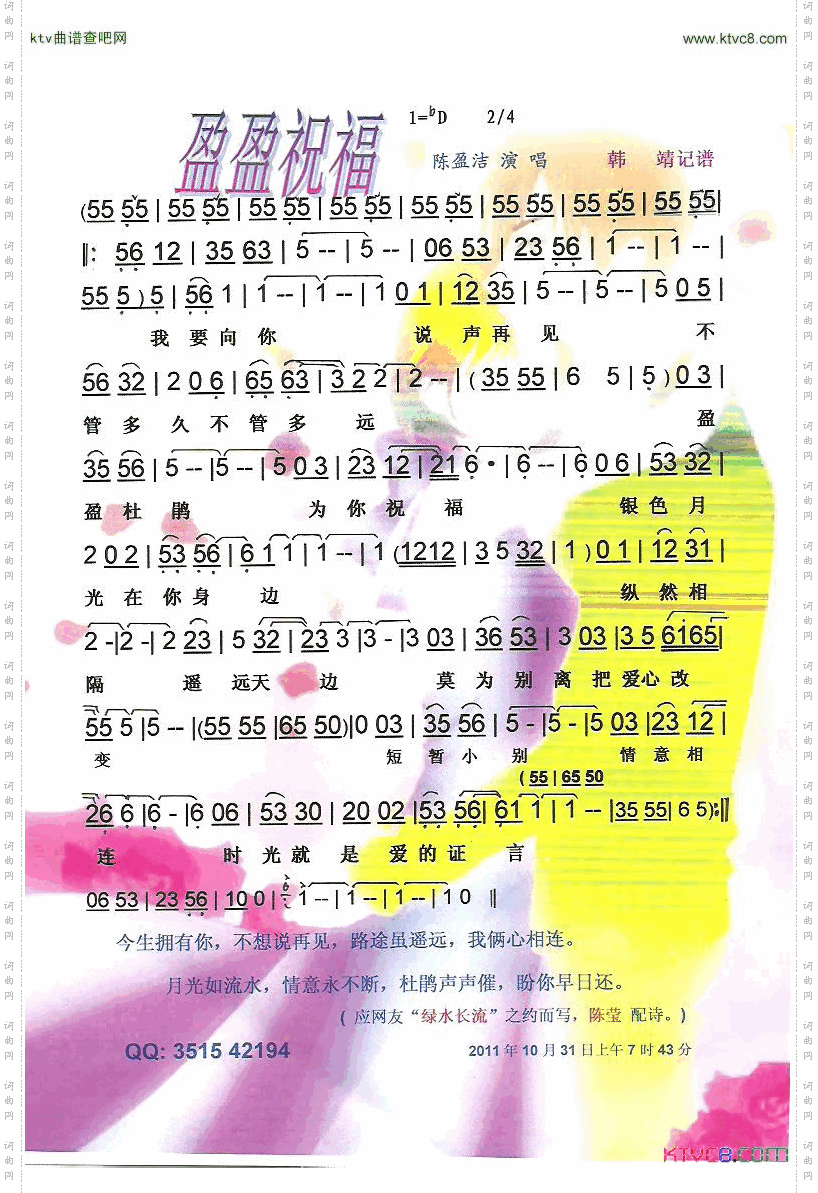 ktv曲谱查吧网 www.ktvc8.com
盈盈祝福 1=bD 2/4
陈盈洁 演 唱 韩 靖记谱
(55 55 | 55 55 | 55 55 | 55 55 | 55 55 | 55 55 | 55 55 | 55 55|
‖: 56 12 | 35 63 | 5 -- | 5 -- | 06 53 | 23 56 | 1 -- | 1 -- |
55 5 ) 5 | 56 1 | 1 -- | 1 -- | 1 0 1 | 12 35 | 5 -- | 5 -- | 5 0 5 |
我 要 向 你 说 声 再 见 不
56 32 | 2 0 6 | 65 63 | 3 2 2 | 2 -- | ( 35 55 | 6 5 | 5 ) 0 3 |
管 多 久 不 管 多 远 盈
35 56 | 5 -- |5 -- | 5 0 3 | 23 12 | 21 6 · | 6 -- | 6 0 6 | 53 32 |
盈 杜 鹃 为 你 祝 福 银 色 月
2 0 2 | 53 56 | 6 1 1 | 1 -- | 1 (1212 | 3 5 32 | 1 ) 0 1 | 12 31 |
光 在 你 身 边 纵 然 相
2 -|2 -| 2 23 | 5 32 | 23 3 |3- |3 03 | 36 53 | 3 03 |3 5 6165|
隔 遥 远天 边 莫 为 别 离 把 爱心 改
55 5 |5 -- |(55 55 |65 50)|0 03 | 35 56 | 5 - |5 - |5 03 |23 12 |
变 短 暂 小 别 情 意 相
( 55 | 65 50
26 6 |6 - |6 06 | 53 30 | 20 02 |53 56| 61 1 | 1 -- |35 55| 6 5):‖
连 时 光 就 是 爱 的 证 言
06 53 | 23 56 | 10 0 | 1 -- | 1 -- | 1 -- | 1 0 ‖
今生拥有你，不想说再见，路途虽遥远，我俩心相连。
月光如流水，情意永不断，杜鹃声声催，盼你早日还。
( 应网友“绿水长流”之约而写，陈莹 配诗。)
QQ: 3515 42194 2011 年 10 月 31 日上午 7 时 43 分
KTVC8.COM